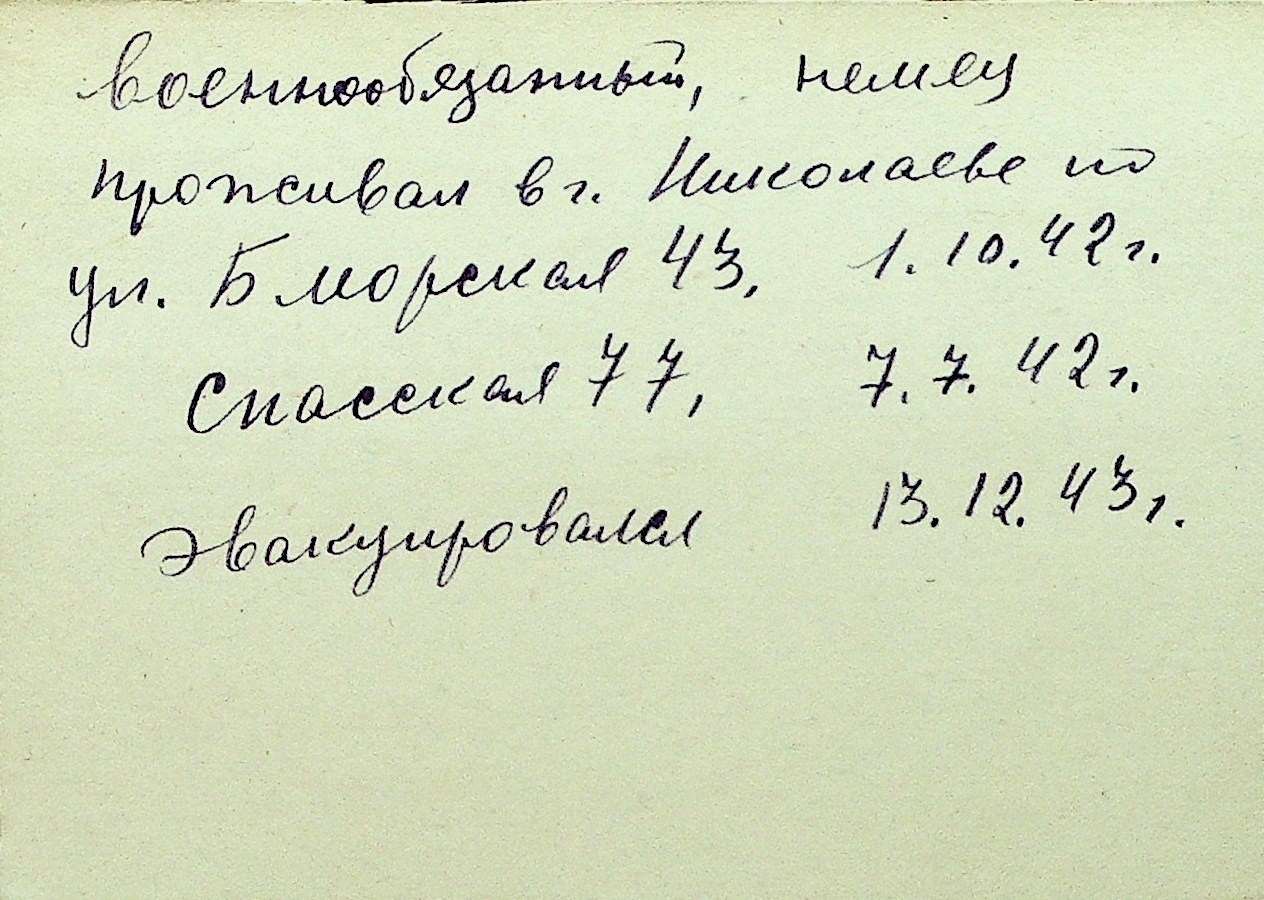 военнообязанный, немец
проживал в г. Николаеве по
ул. Б морская 43, 1.10.42 г.
Спасская 77, 7.7.42 г.
эвакуировался 13.12.43 г.